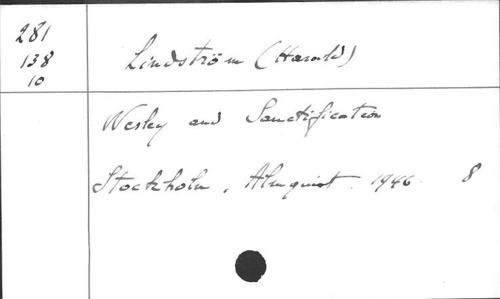 281
138
10
Lindström (Harald)
Wesley and Sanctification
Stockholm, Almquist. 1946. 8